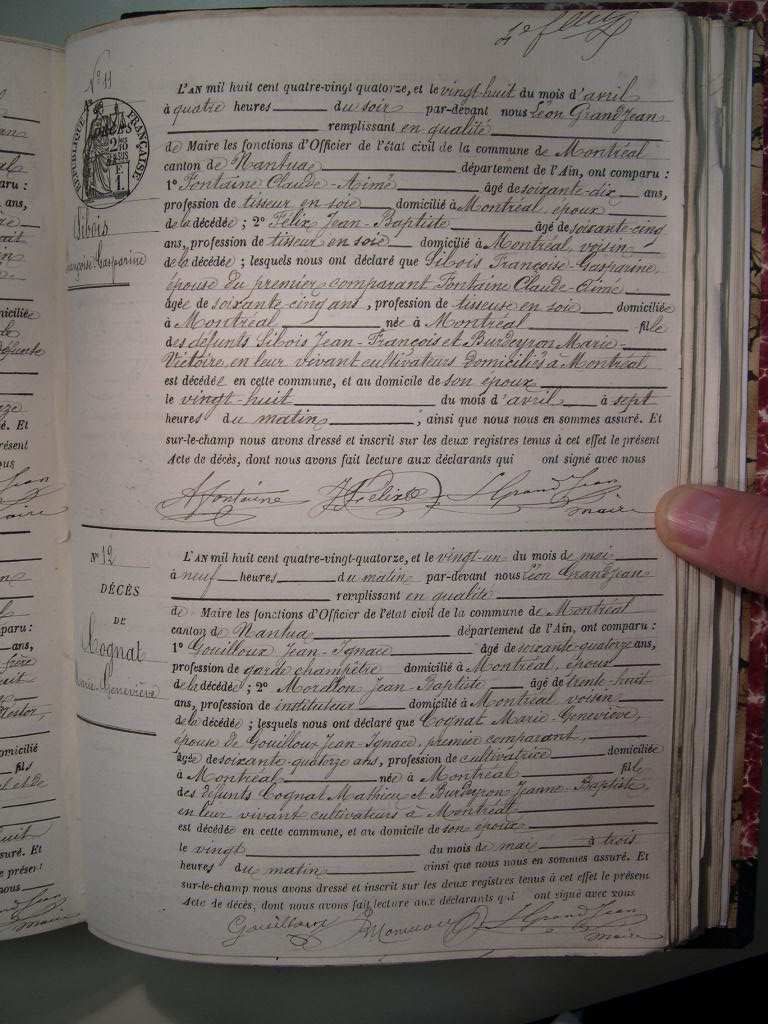 N° 11
RÉPUBLIQUE FRANÇAISE
Sibois
Françoise-Gasparine
L'AN mil huit cent quatre-vingt quatorze, et le vingt-huit du mois d'avril
à quatre heures du soir par-devant nous Léon Grandjean
remplissant en qualité
de Maire les fonctions d'Officier de l'état civil de la commune de Montréal
canton de Nantua département de l'Ain, ont comparu :
1° Fontaine Claude-Aimé âgé de soixante-dix ans,
profession de tisseur en soie domicilié à Montréal époux
de la décédée ; 2° Félix Jean-Baptiste âgé de soixante-cinq
ans, profession de tisseur en soie domicilié à Montréal, voisin
de la décédée ; lesquels nous ont déclaré que Sibois Françoise-Gasparine,
épouse du premier comparant Fontaine Claude-Aimé
âgée de soixante-cinq ans, profession de tisseuse en soie domiciliée
à Montréal née à Montréal fille
des défunts Sibois Jean-François et Burdeyron Marie-
Victoire, en leur vivant cultivateurs domiciliés à Montréal
est décédée en cette commune, et au domicile de son époux
le vingt-huit du mois d'avril à sept
heures du matin ; ainsi que nous nous en sommes assuré. Et
sur-le-champ nous avons dressé et inscrit sur les deux registres tenus à cet effet le présent
Acte de décès, dont nous avons fait lecture aux déclarants qui ont signé avec nous
A Fontaine J Félix L Grandjean
maire
N° 12
DÉCÈS
DE
Cognat
Marie-Geneviève
L'AN mil huit cent quatre-vingt-quatorze, et le vingt-un du mois de mai
à neuf heures du matin par-devant nous Léon Grandjean
remplissant en qualité
de Maire les fonctions d'Officier de l'état civil de la commune de Montréal
canton de Nantua département de l'Ain, ont comparu :
1° Gouilloux Jean-Ignace âgé de soixante-quatorze ans,
profession de garde champêtre domicilié à Montréal, époux
de la décédée ; 2° Jean-Baptiste âgé de trente-huit
ans, profession de instituteur domicilié à Montréal voisin
de la décédée ; lesquels nous ont déclaré que Cognat Marie-Geneviève,
épouse de Gouilloux Jean-Ignace, premier comparant,
âgée de soixante-quatorze ans, profession de cultivatrice domiciliée
à Montréal née à Montréal fille
des défunts Cognat Mathieu et Burdeyron Jeanne-Baptiste,
en leur vivant cultivateurs à Montréal
est décédée en cette commune, et au domicile de son époux
le vingt du mois de mai à trois
heures du matin ainsi que nous nous en sommes assuré. Et
sur-le-champ nous avons dressé et inscrit sur les deux registres tenus à cet effet le présent
Acte de décès, dont nous avons fait lecture aux déclarants qui ont signé avec nous
Gouilloux L Grandjean
maire